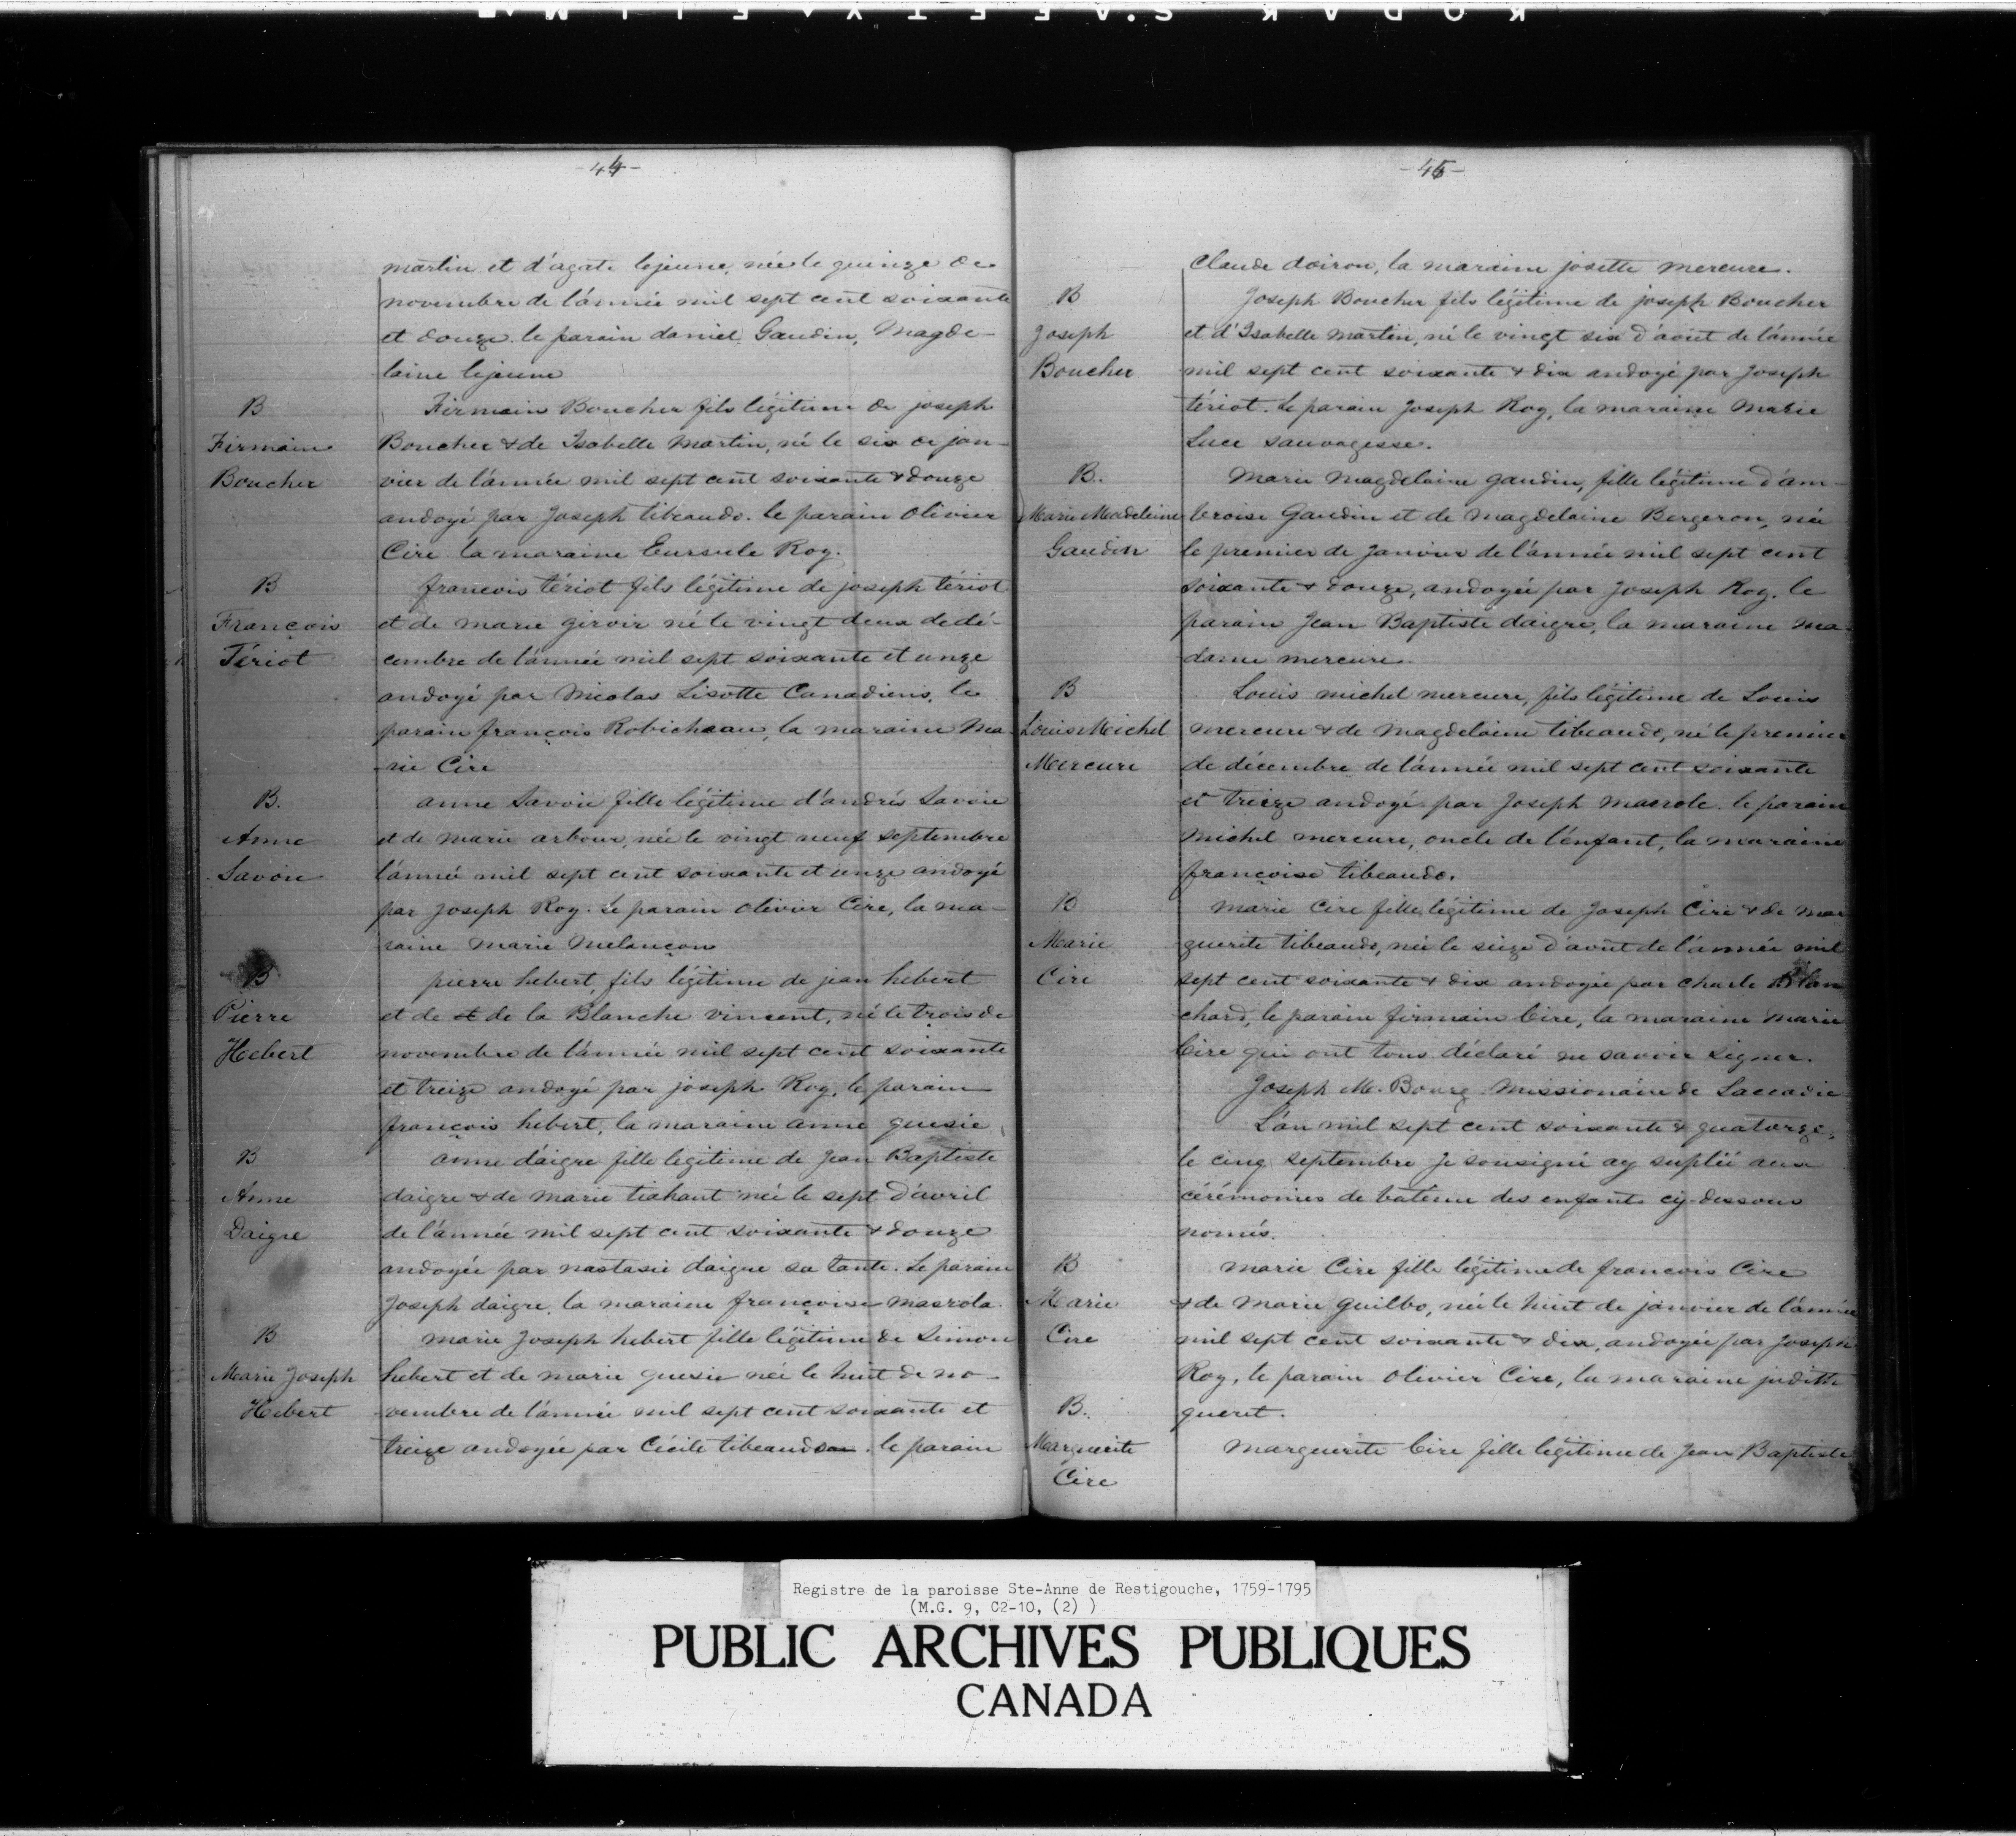 KODAK S.AFETY FILM
-44-
martin et d'agate lejeune, née le quinze de
novembre de l'année mil sept cent soixante
et douze. le parain daniel Gaudin, Magde-
laine lejeune
B
Firmain
Boucher
Firmain Boucher fils légitime de joseph
Boucher & de Isabelle Martin, né le six de jan-
vier de l'année mil sept cent soixante & douze
andoyé par Joseph tibeaudo. le parain Olivier
Cire la maraine Eursule Roy.
B
François
Tériot
françois tériot fils légitime de joseph tériot
et de marie giroir né le vingt deux de dé-
cembre de l'année mil sept soixante et unze
andoyé par Nicolas Lisotte Canadiens, le
parain françois Robicheau, la maraine Ma-
rie Cire
B.
Anne
Savoie
anne Savoie fille légitime d'andrés Savoie
et de marie arbour, née le vingt neuf septembre
l'année mil sept cent soixante et unze andoyé
par Joseph Roy. Le parain Olivier Cire, la ma-
raine Marie Melançon
B
Pierre
Hebert
pierre hebert, fils légitime de jean hebert
et de et de la Blanche vincent, né le trois de
novembre de l'année mil sept cent soixante
et treize andoyé par joseph Roy, le parain
françois hebert, la maraine anne guesie
B
Anne
Daigre
anne daigre fille legitime de Jean Baptiste
daigre & de marie trahant née le sept d'avril
de l'année mil sept cent soixante & douze
andoyée par nastasie daigre sa tante. Le parain
Joseph daigre, la maraine françoise masrola.
B
Marie Joseph
Hebert
marie Joseph hebert fille légitime de Simon
hebert et de marie guesie née le huit de no-
vembre de l'année mil sept cent soixante et
treize andoyée par Cécile tibeaudo. le parain
-45-
Claude doiron, la maraine josette mercure.
B
Joseph
Boucher
Joseph Boucher fils légitime de joseph Boucher
et d'Isabelle Martin, né le vingt six d'août de l'année
mil sept cent soixante & dix andoyé par Joseph
tériot. Le parain Joseph Roy, la maraine Marie
Luce sauvagesse.
B.
Marie Madeleine
Gaudin
Marie Magdelaine gaudin, fille légitime d'am-
broise Gaudin et de Magdelaine Bergeron, née
le premier de Janvier de l'année mil sept cent
soixante & douze, andoyée par Joseph Roy. le
parain Jean Baptiste daigre, la maraine ma-
dame mercure.
B
Louis Michel
Mercure
Louis michel mercure, fils légitime de Louis
mercure & de Magdelaine tibeaudo, né le premier
de décembre de l'année mil sept cent soixante
et treize andoyé par Joseph Masrole. le parain
Michel mercure, oncle de l'enfant, la maraine
françoise tibeaudo.
B
Marie
Cire
Marie Cire fille légitime de Joseph Cire & de mar
guerite tibeaudo, née le sieze d'août de l'année mil
sept cent soixante & dix andoyée par Charle Blan
chard, le parain firmain Cire, la maraine marie
Cire qui ont tous déclaré ne savoir signer.
Joseph M. Bourg Missionaire de Laccadie
L'an mil sept cent soixante & quatorze,
le cinq septembre Je sousigné ay suplëé aux
cérémonies de batême des enfants cy-dessous
només.
B
Marie
Cire
Marie Cire fille légitime de françois Cire
& de Marie Guilbo, née le huit de janvier de l'année
mil sept cent soixante & dix, andoyée par Joseph
Roy, le parain Olivier Cire, la maraine judith
gueret.
B.
Marguerite
Cire
Marguerite Cire fille légitime de Jean Baptiste
Registre de la paroisse Ste-Anne de Restigouche, 1759-1795
(M.G. 9, C2-10, (2) )
PUBLIC ARCHIVES PUBLIQUES
CANADA